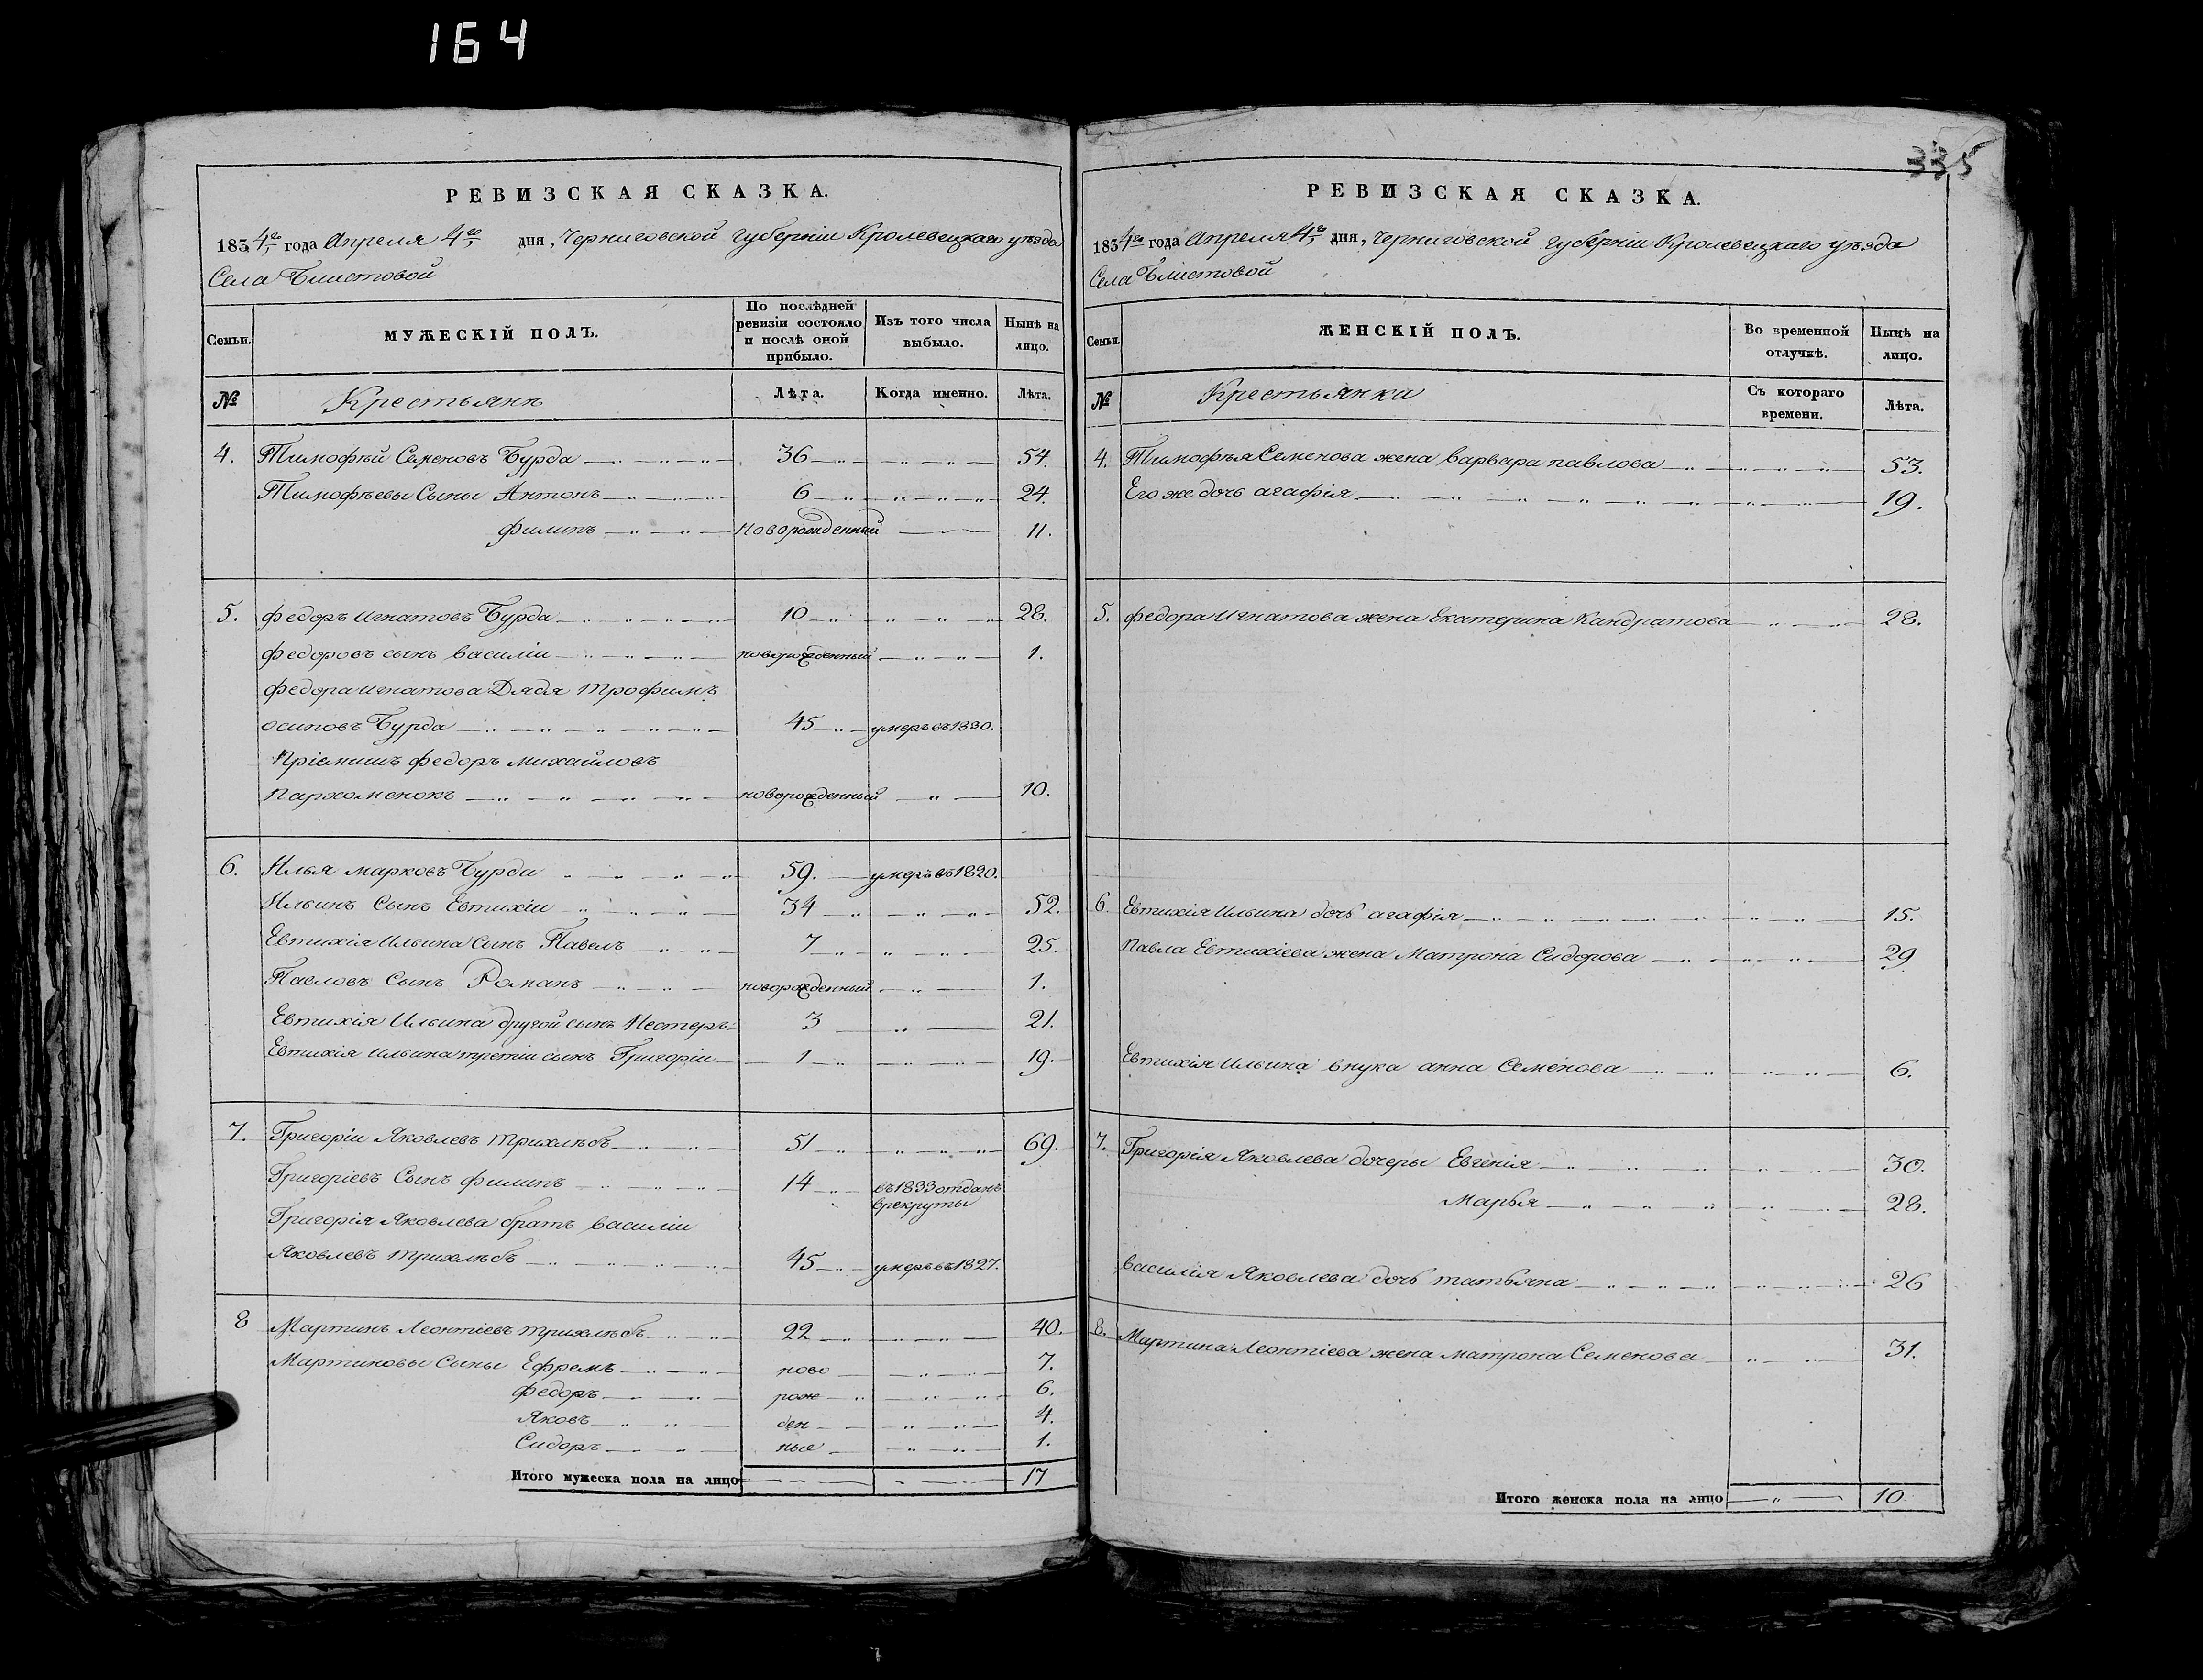 164
335
РЕВИЗСКАЯ СКАЗКА.
1834го года Апреля 4го дня, Черниговской губернiи Кролевецкаго уѣзда
Села Блистовой
Семьи. МУЖЕСКIЙ ПОЛЪ. По послѣдней ревизiи состояло и послѣ оной прибыло. Изъ того числа выбыло. Нынѣ на лицо.
№ Крестьянъ Лѣта. Когда именно. Лѣта.
4. Тимофѣй Семеновъ Бурда 36 54.
Тимофѣевы Сыны Антонъ 6 24.
филипъ новорожденный 11.
5. федоръ Игнатовъ Бурда 10 28.
федоровъ сынъ василiи новорожденный 1.
федора игнатова Дядя Трофимъ
осиповъ Бурда 45 умеръ въ 1830.
Прiемишъ федоръ михайловъ
Пархоменокъ новорожденный 10.
6. Илья марковъ Бурда 59. умеръ въ 1820.
Ильинъ Сынъ Евтихiи 34 52.
Евтихiя Ильина Сынъ Павелъ 7 25.
Павловъ Сынъ Романъ новорожденный 1.
Евтихiя Ильина другой сынъ Нестеръ 3 21.
Евтихiя Ильина третiи сынъ Григорiи 1 19.
7. Григорiи Яковлевъ Трихлѣбъ 51 69.
Григорiевъ Сынъ филипъ 14 въ 1833 отданъ
врекруты
Григорiя Яковлева братъ василiи
Яковлевъ Трихлѣбъ 45 умеръ въ 1827.
8 Мартинъ Леонтiевъ трихлѣбъ 22 40.
Мартиновы Сыны Ефремъ ново 7.
федоръ рож 6.
Яковъ ден 4.
Сидоръ ные 1.
Итого мужеска пола на лицо 17
РЕВИЗСКАЯ СКАЗКА.
1834го года Апреля 4го дня, Черниговской губернiи Кролевецкаго уѣзда
Села Блистовой
Семьи. ЖЕНСКIЙ ПОЛЪ. Во временной отлучкѣ. Нынѣ на лицо.
№ Крестьянки Съ котораго времени. Лѣта.
4. Тимофѣя Семенова жена варвара павлова 53.
Его же дочь агафiя 19.
5. федора Игнатова жена Екатерина Кандратова 28.
6. Евтихiя Ильина дочь агафiя 15.
Павла Евтихiева жена Матрона Сидорова 29
Евтихiя Ильина внука анна Семенова 6.
7. Григорiя Яковлева дочеры Евгенiя 30.
Марья 28.
василiя Яковлева дочь татьяна 26
8. Мартина Леонтiева жена матрона Семенова 31.
Итого женска пола на лицо 10.